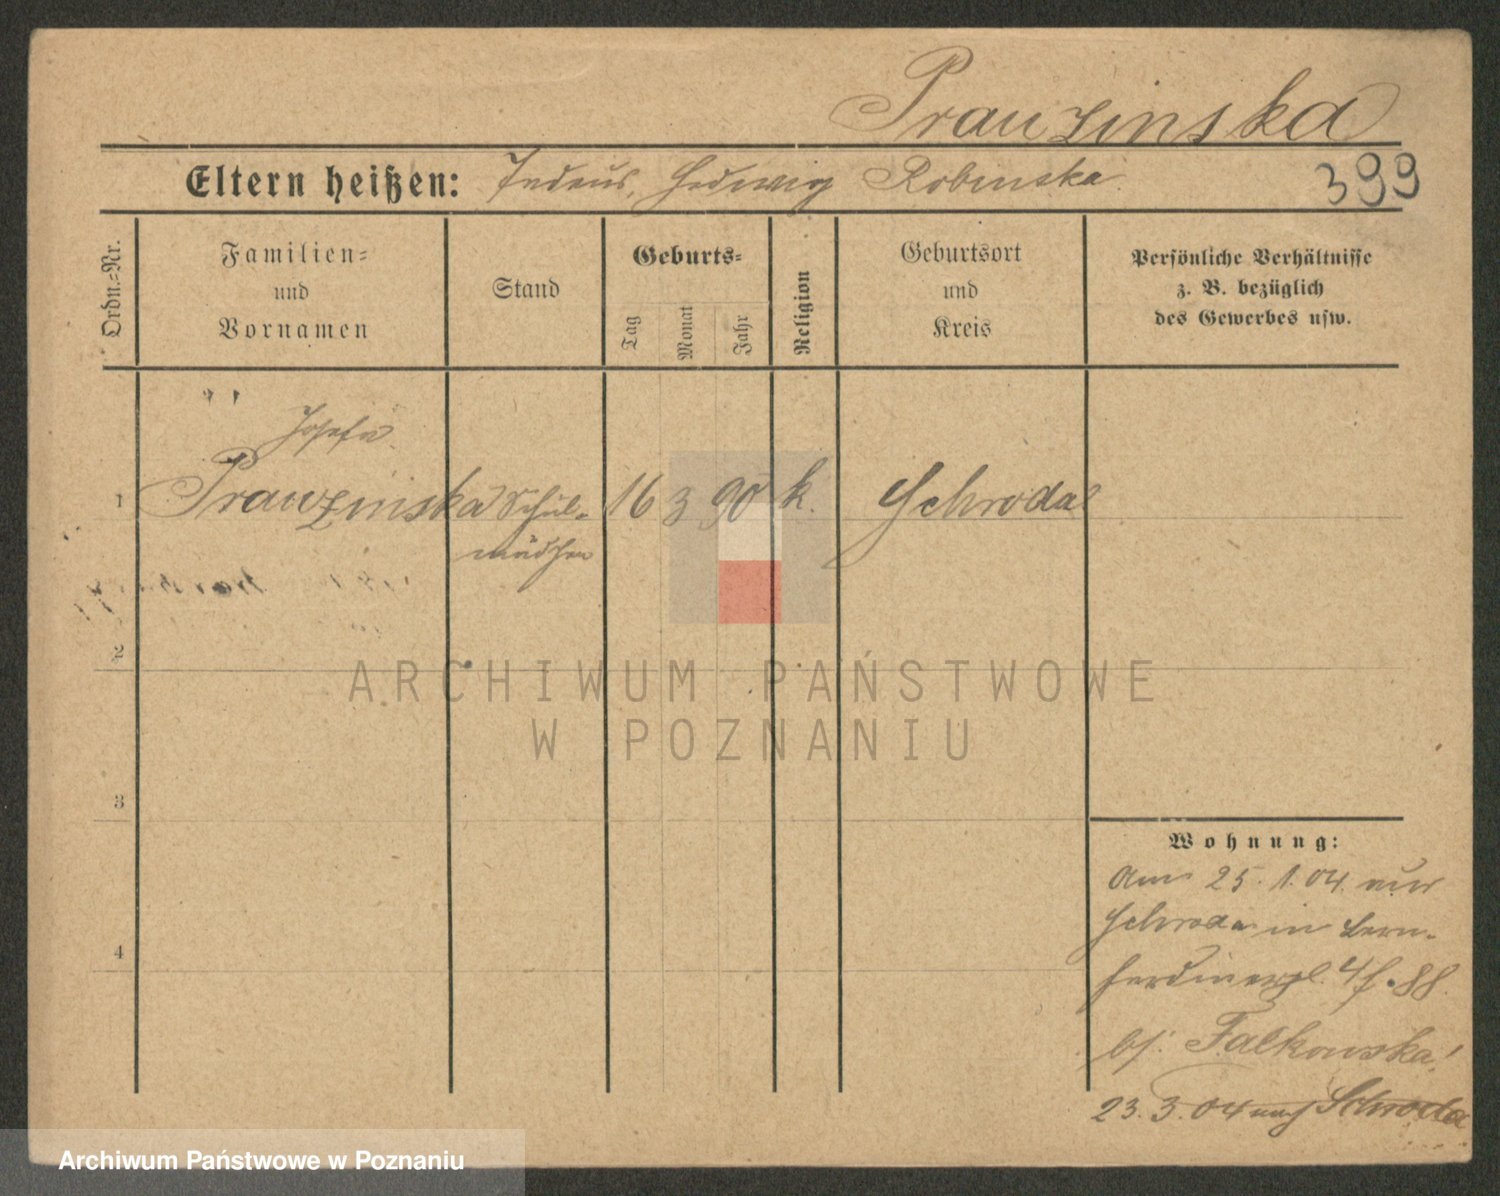 Prauzinska
Eltern heißen: Hedwig Robinska
399
Ordn.=Nr.
Familien=
und
Vornamen
Stand
Geburts=
Tag
Monat
Jahr
Religion
Geburtsort
und
Kreis
Persönliche Verhältnisse
z. B. bezüglich
des Gewerbes usw.
Josefa
1 Prawzinska Schul-
mädchen
16 3 90 k. Schroda
2
3
4
ARCHIWUM PAŃSTWOWE
W POZNANIU
Wohnung:
Am 25.1.04. aus
Schroda in Bern-
hardinerpl.
bj. Falkowska!
23.3.04 nach Schroda
Archiwum Państwowe w Poznaniu